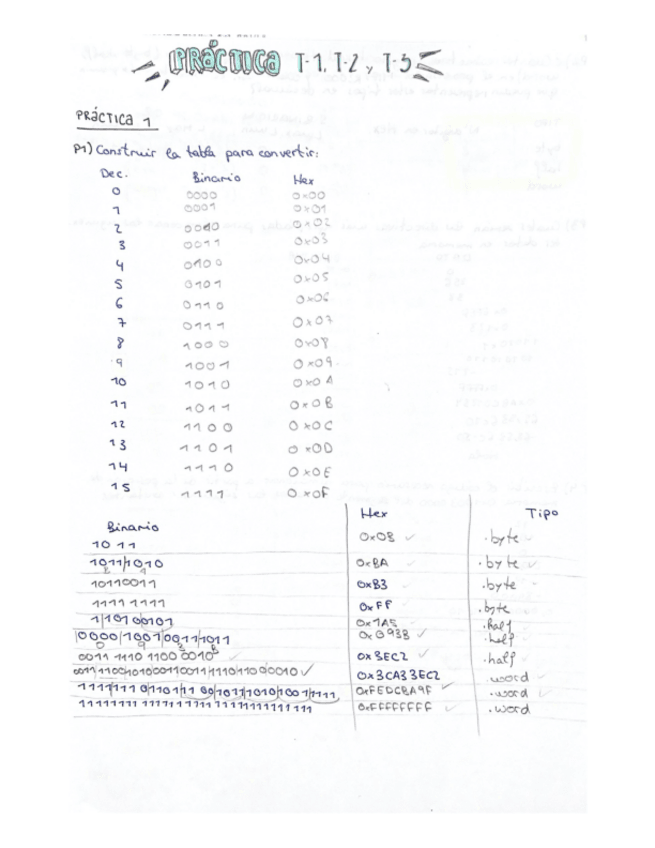 PRÁCTICA T-1, T-2 y T-3
PRÁCTICA 1
P1) Construir la tabla para convertir:
Dec. Binario Hex
0 0000 0x00
1 0001 0x01
2 0010 0x02
3 0011 0x03
4 0100 0x04
5 0101 0x05
6 0110 0x06
7 0111 0x07
8 1000 0x08
9 1001 0x09
10 1010 0x0A
11 1011 0x0B
12 1100 0x0C
13 1101 0x0D
14 1110 0x0E
15 1111 0x0F
Binario Hex Tipo
1011 0x0B .byte
1011/1010 0xBA .byte
10110011 0xB3 .byte
1111 1111 0xFF .byte
1/1010/0101 0x1A5 .half
0000/1001/0011/1011 0x093B .half
0 9 3 B
0011 1110 1100 0010 0x3EC2 .half
0x3CA33EC2 .word
0xFEDCBA9F .word
0xFFFFFFFF .word